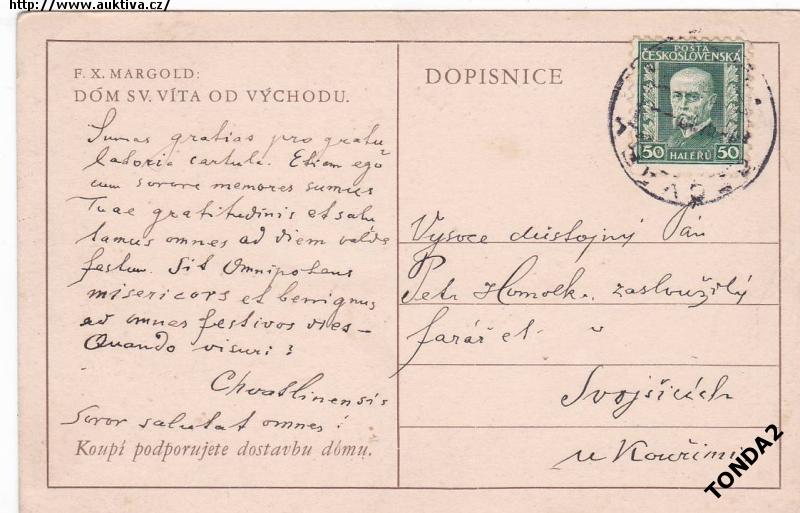 http://www.auktiva.cz/
F. X. MARGOLD:
DÓM SV. VÍTA OD VÝCHODU.
Sumas gratias pro gratu
latoria cartula. Etiam ego
cum sorore memores sumus
Tuae gratitudinis et salu
tamus omnes ad diem valde
festum. Sit Omnipotens
misericors et benignus
ad omnes festivos dies –
Quando visuri?
Chvatlinensis
Soror salutat omnes!
Koupí podporujete dostavbu dómu.
DOPISNICE
POŠTA
ČESKOSLOVENSKÁ
50 HALÉŘŮ 50
Vysoce důstojný Pán
Petr Homolka, zasloužilý
farář et
Svojšicích
u Kouřimi
TONDA2